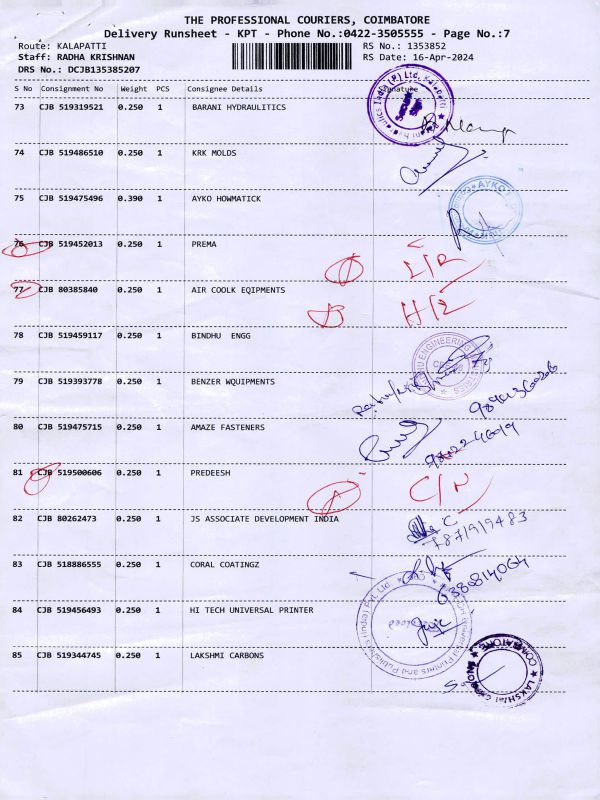 THE PROFESSIONAL COURIERS, COIMBATORE
Delivery Runsheet - KPT - Phone No.:0422-3505555 - Page No.:7
Route: KALAPATTI RS No.: 1353852
Staff: RADHA KRISHNAN RS Date: 16-Apr-2024
DRS No.: DCJB135385207
S No Consignment No Weight PCS Consignee Details Signature
73 CJB 519319521 0.250 1 BARANI HYDRAULITICS
74 CJB 519486510 0.250 1 KRK MOLDS
75 CJB 519475496 0.390 1 AYKO HOWMATICK
76 CJB 519452013 0.250 1 PREMA
77 CJB 80385840 0.250 1 AIR COOLK EQIPMENTS
78 CJB 519459117 0.250 1 BINDHU ENGG
79 CJB 519393778 0.250 1 BENZER WQUIPMENTS
80 CJB 519475715 0.250 1 AMAZE FASTENERS
81 CJB 519500606 0.250 1 PREDEESH C/N
82 CJB 80262473 0.250 1 JS ASSOCIATE DEVELOPMENT INDIA
7871919483
83 CJB 518886555 0.250 1 CORAL COATINGZ
6380814064
84 CJB 519456493 0.250 1 HI TECH UNIVERSAL PRINTER
85 CJB 519344745 0.250 1 LAKSHMI CARBONS